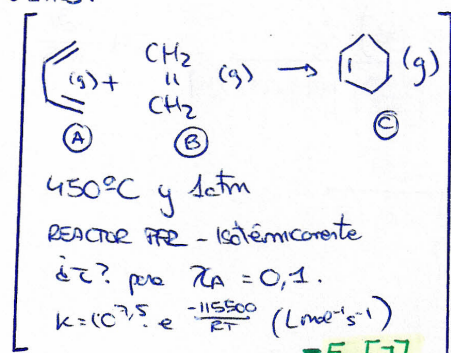 (g) + CH2 = CH2 (g) → (g)
A B C
450ºC y 1atm
REACTOR PFR - Isotérmicamente
¿τ? para XA = 0,1.
K = 10^7,5 · e^(-115500/RT) (L mol^-1 s^-1)